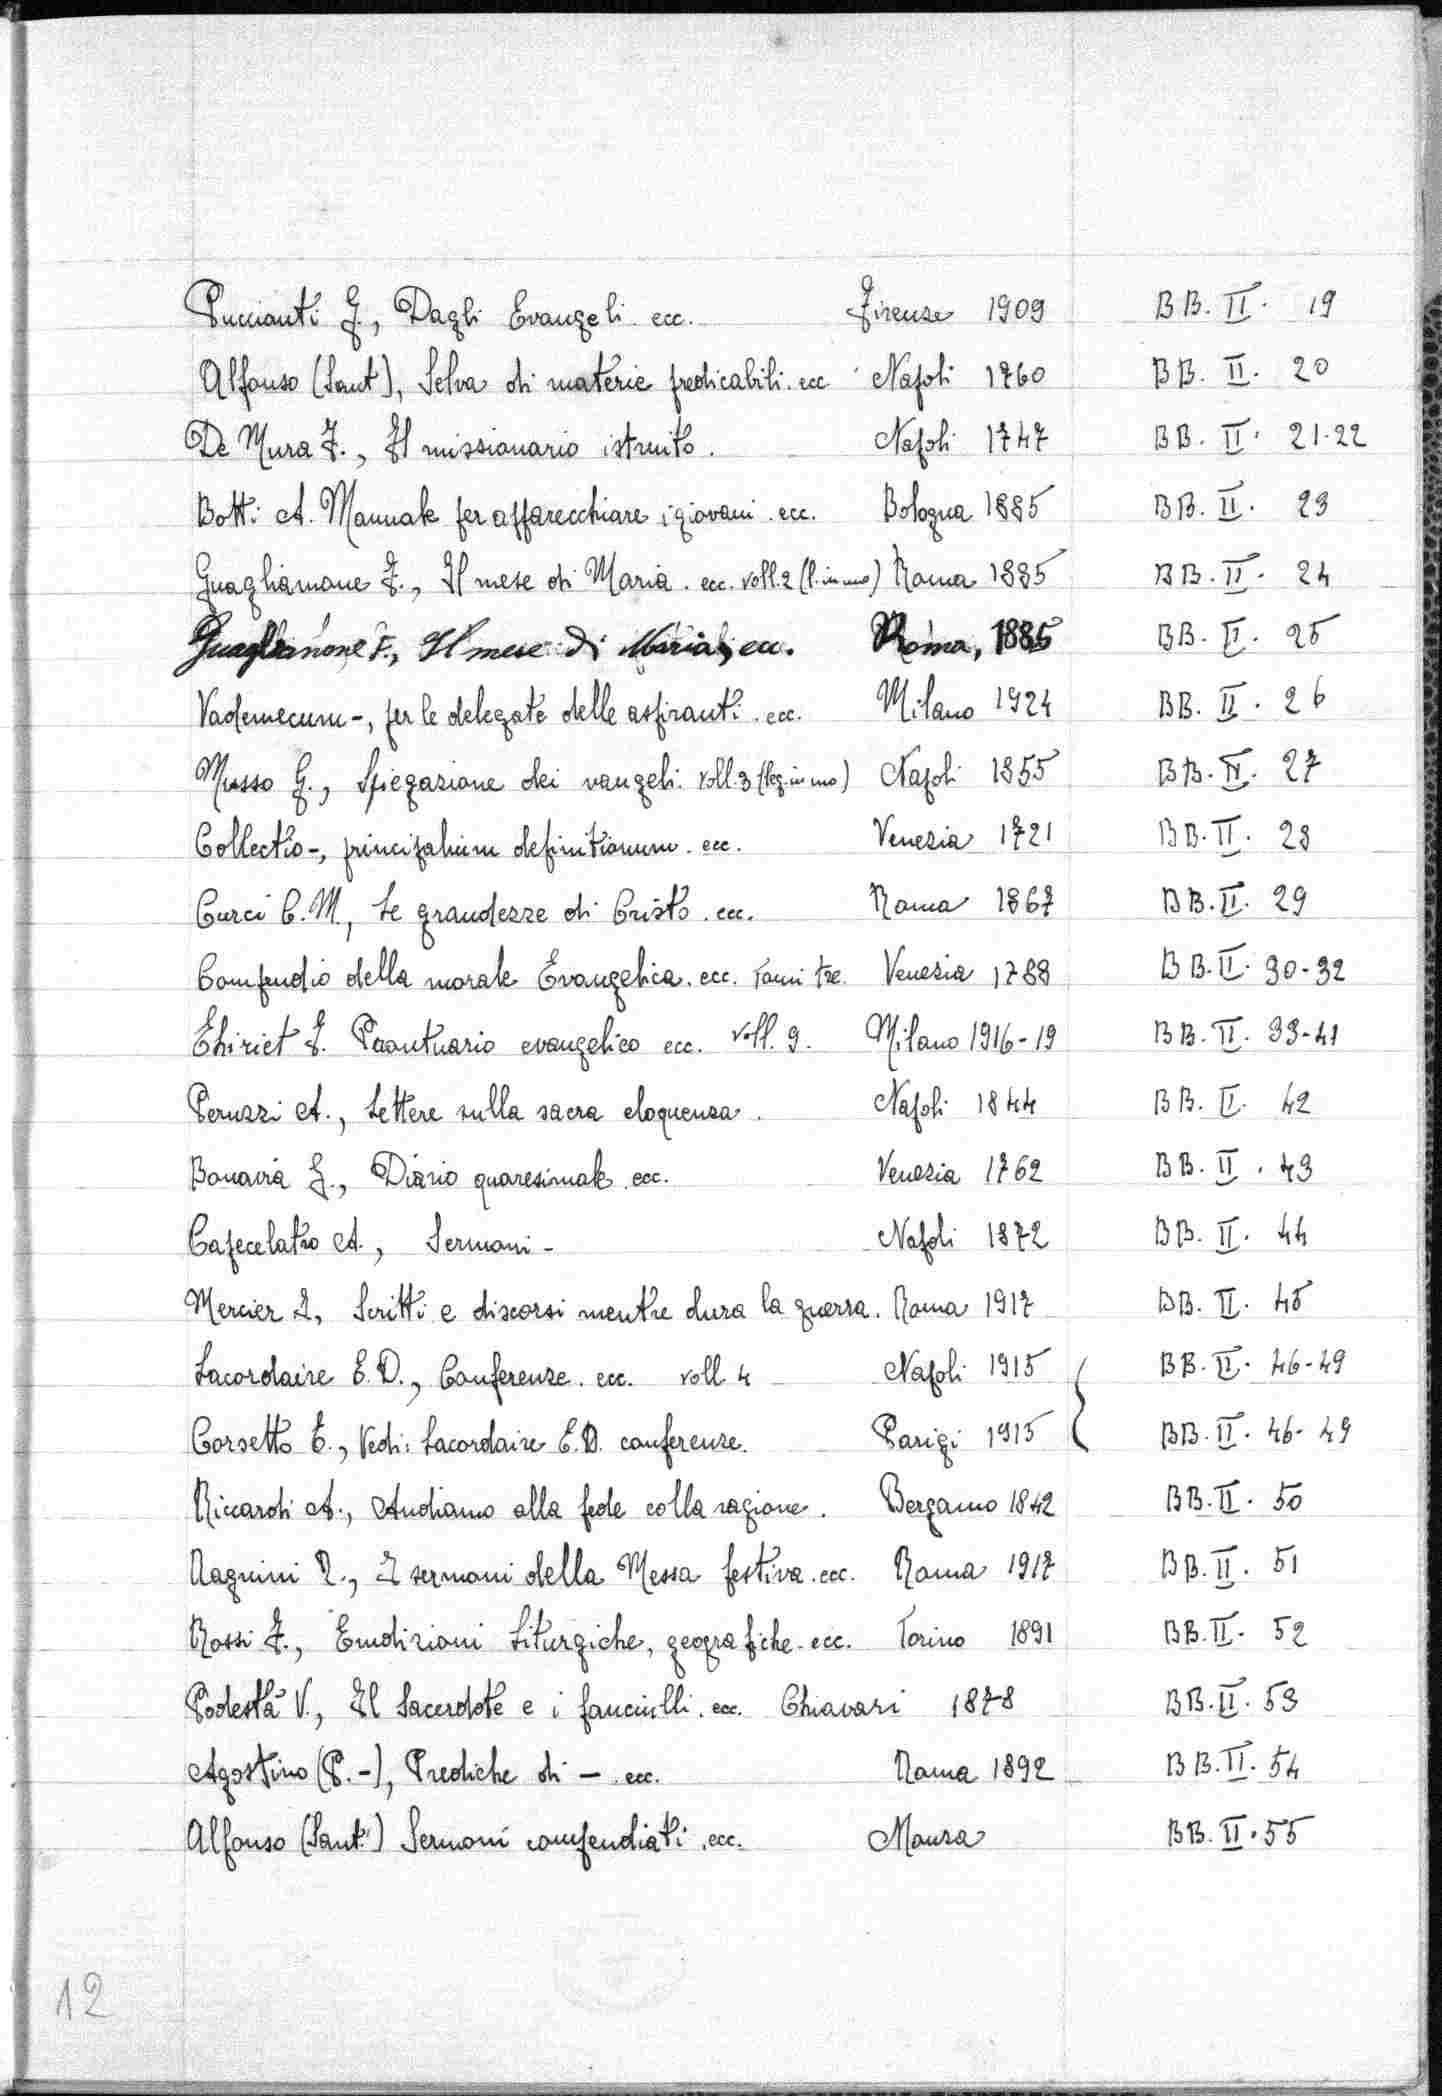 Puccianti G., Dagli Evangeli ecc. Firenze 1909 BB. II. 19
Alfonso (Sant'), Selva di materie predicabili. ecc Napoli 1760 BB. II. 20
De Mura F., Il missionario istruito. Napoli 1747 BB. II. 21-22
Botti A. Manuale per apparecchiare i giovani. ecc. Bologna 1885 BB. II. 23
Guaglianone F., Il mese di Maria. ecc. voll. 2 (l. in uno) Roma 1885 BB. II. 24
Guaglianone F., Il mese di Maria, ecc. Roma, 1885 BB. II. 25
Vademecum -, per le delegate delle aspiranti. ecc. Milano 1924 BB. II. 26
Musso G., Spiegazione dei vangeli. voll. 3 (leg. in uno) Napoli 1855 BB. II. 27
Collectio -, principalium definitionum. ecc. Venezia 1721 BB. II. 28
Curci C. M., Le grandezze di Cristo. ecc. Roma 1867 BB. II. 29
Compendio della morale Evangelica. ecc. Tomi tre. Venezia 1788 BB. II. 30-32
Thiriet G. Prontuario evangelico ecc. voll. 9. Milano 1916-19 BB. II. 33-41
Peruzzi A., Lettere sulla sacra eloquenza. Napoli 1844 BB. II. 42
Bonavia G., Diario quaresimale. ecc. Venezia 1762 BB. II. 43
Capecelatro A., Sermoni - Napoli 1872 BB. II. 44
Mercier D., Scritti e discorsi mentre dura la guerra. Roma 1917 BB. II. 45
Lacordaire E. D., Conferenze. ecc. voll 4 Napoli 1915 BB. II. 46-49
Corsetto E., Vedi: Lacordaire E. D. conferenze. Parigi 1915 BB. II. 46-49
Riccardi A., Andiamo alla fede colla ragione. Bergamo 1842 BB. II. 50
Ragnini R., I sermoni della Messa festiva. ecc. Roma 1917 BB. II. 51
Rossi F., Erudizioni liturgiche, geografiche. ecc. Torino 1891 BB. II. 52
Podestà V., Il Sacerdote e i fanciulli. ecc. Chiavari 1878 BB. II. 53
Agostino (P. -), Prediche di - . ecc. Roma 1892 BB. II. 54
Alfonso (Sant') Sermoni compendiati. ecc. Monza BB. II. 55
12